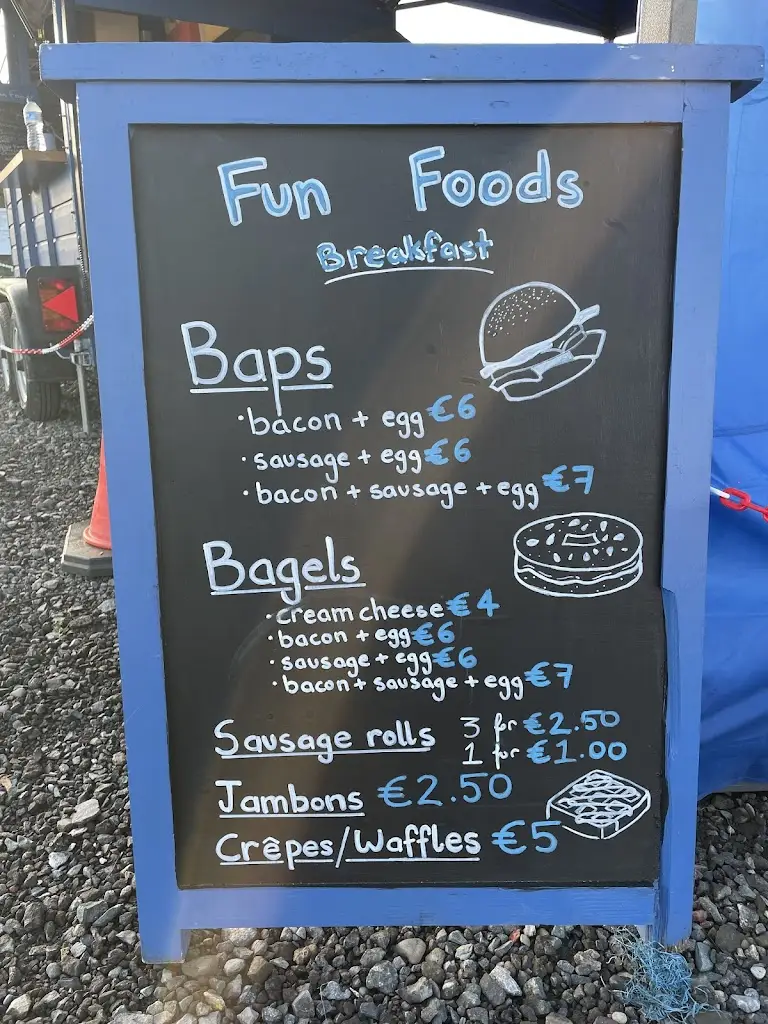 Fun Foods
Breakfast
Baps
·bacon + egg €6
·sausage + egg €6
·bacon + sausage + egg €7
Bagels
·cream cheese €4
·bacon + egg €6
·sausage + egg €6
·bacon + sausage + egg €7
Sausage rolls 3 for €2.50
1 for €1.00
Jambons €2.50
Crêpes/Waffles €5